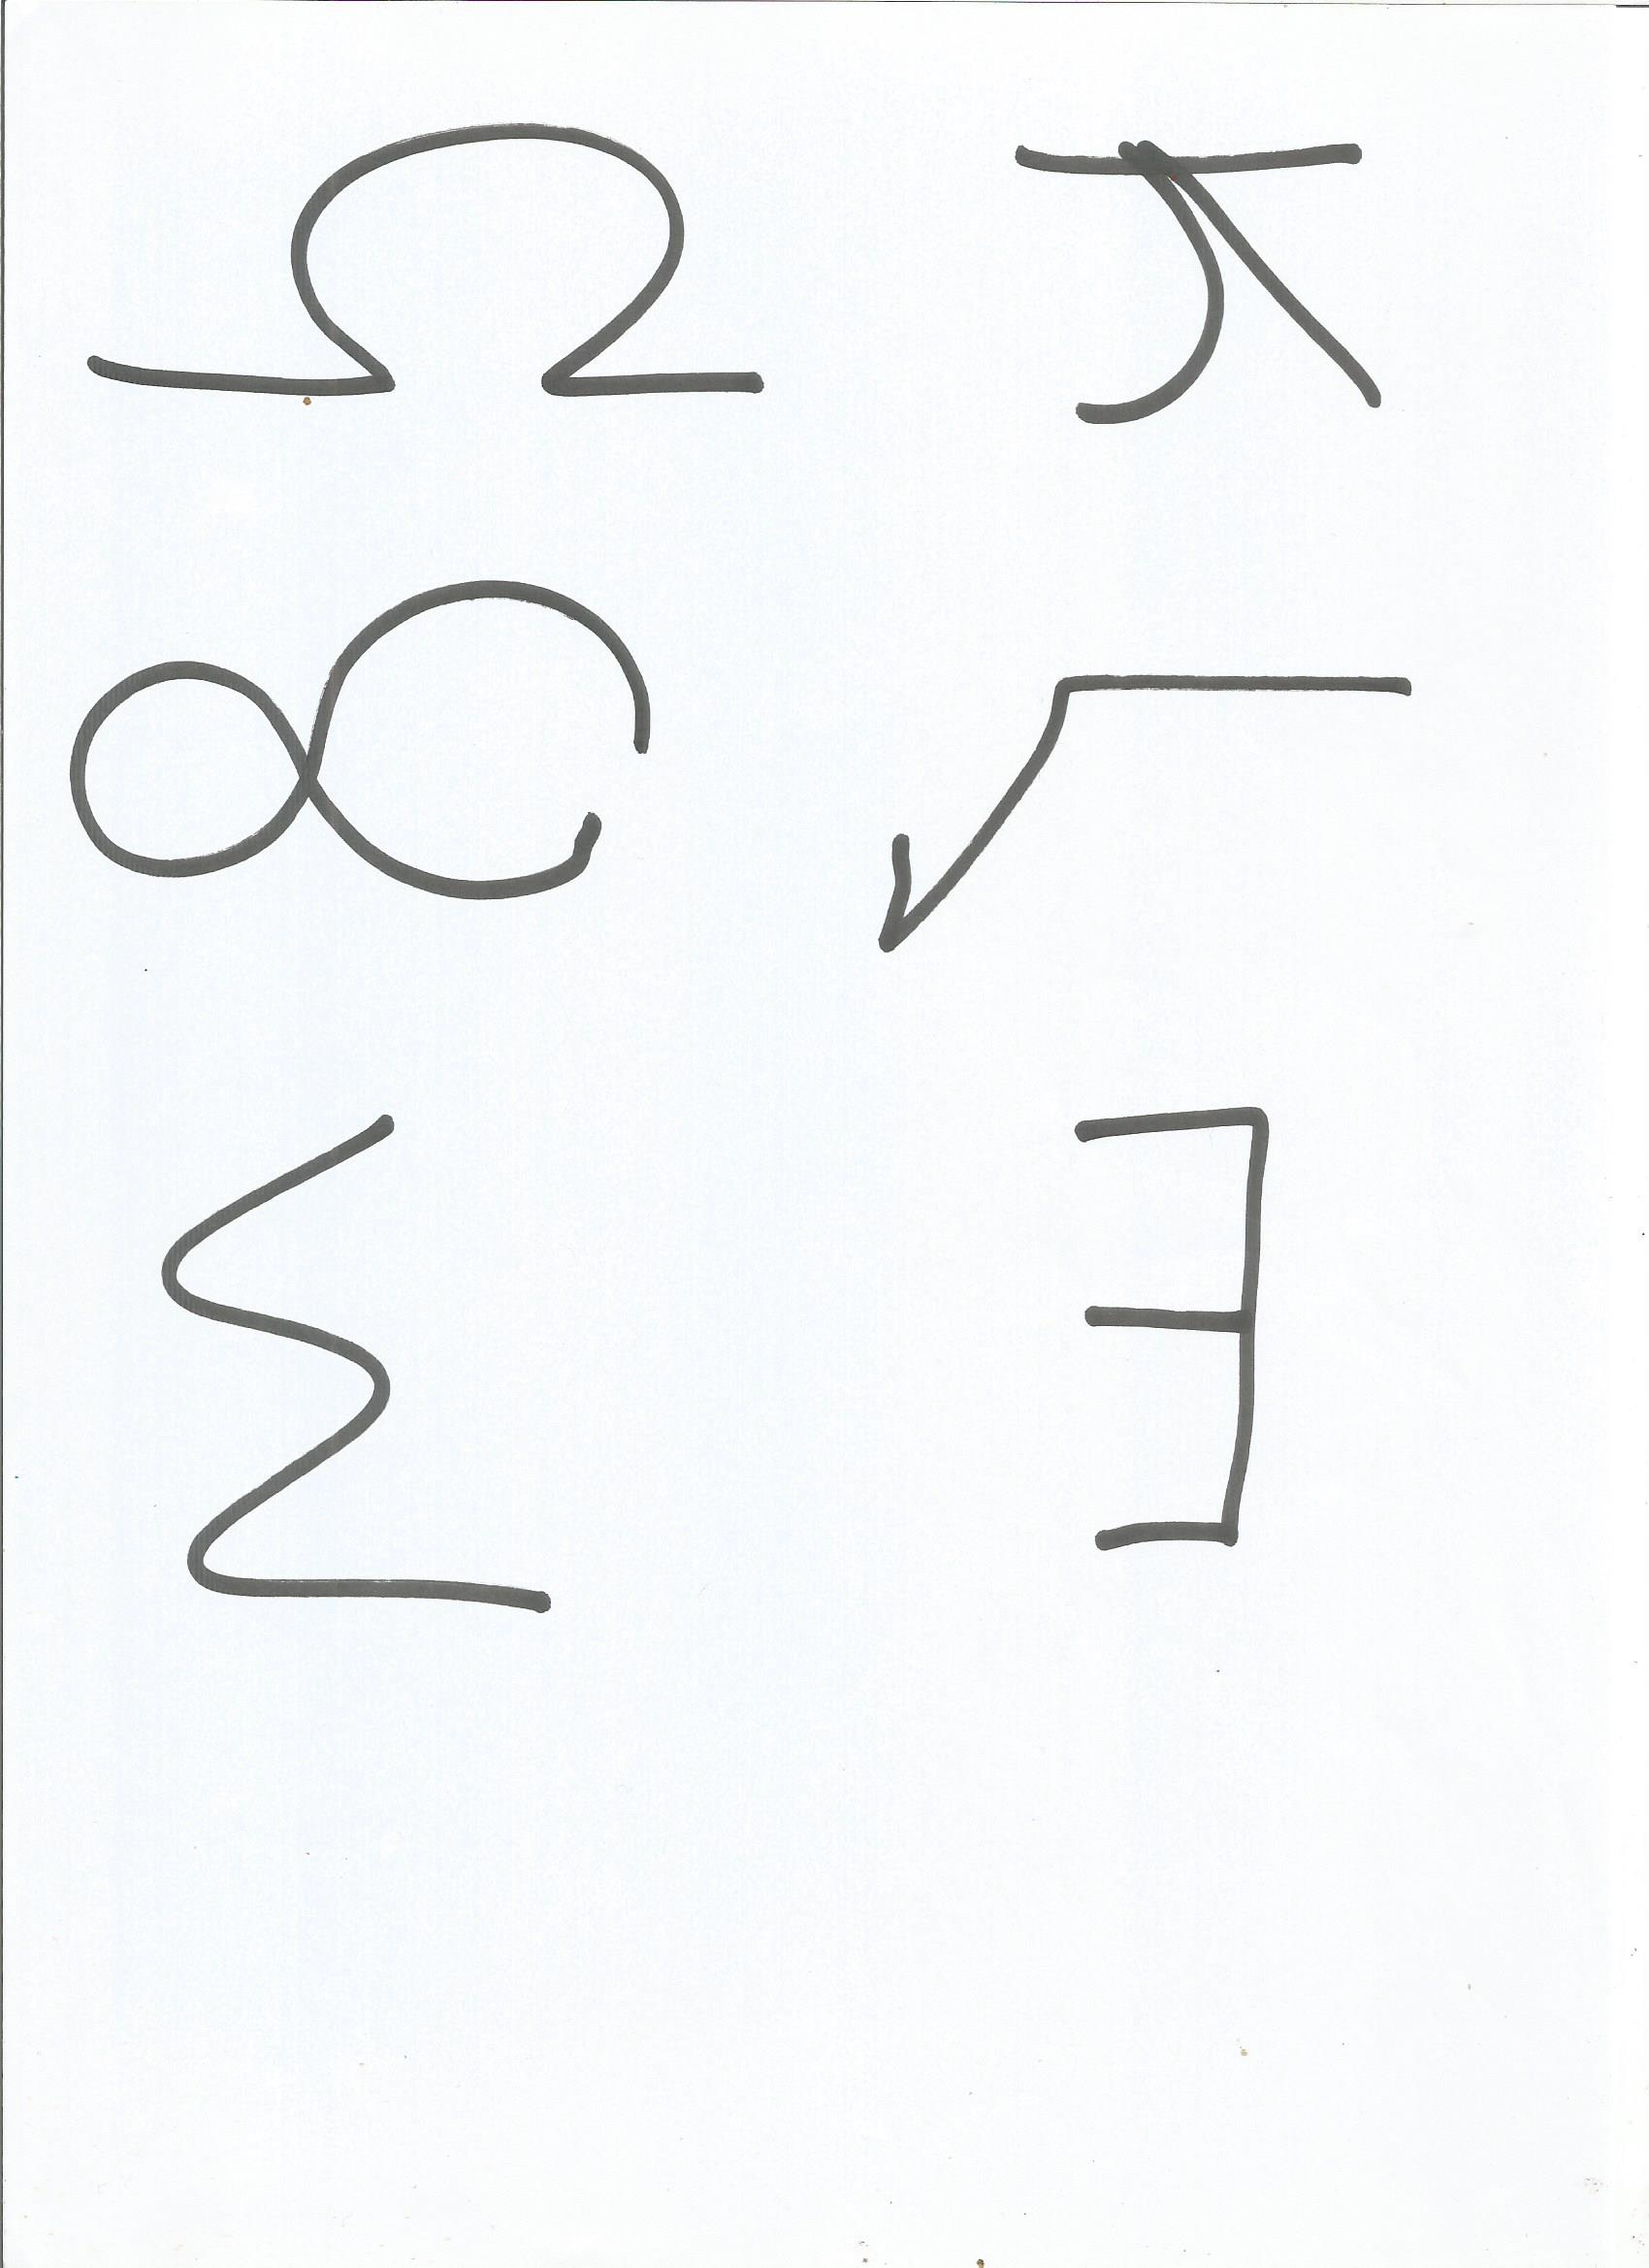 Ω π
∞ √
Σ ∃